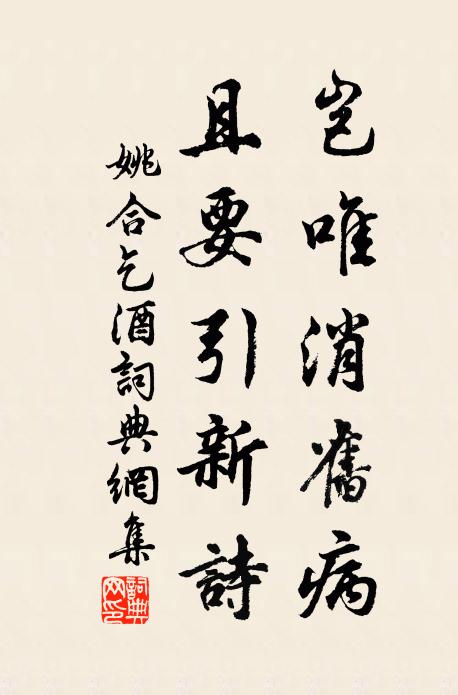 豈唯消舊病
且要引新詩
姚合乞酒詞典網集
詞典網印